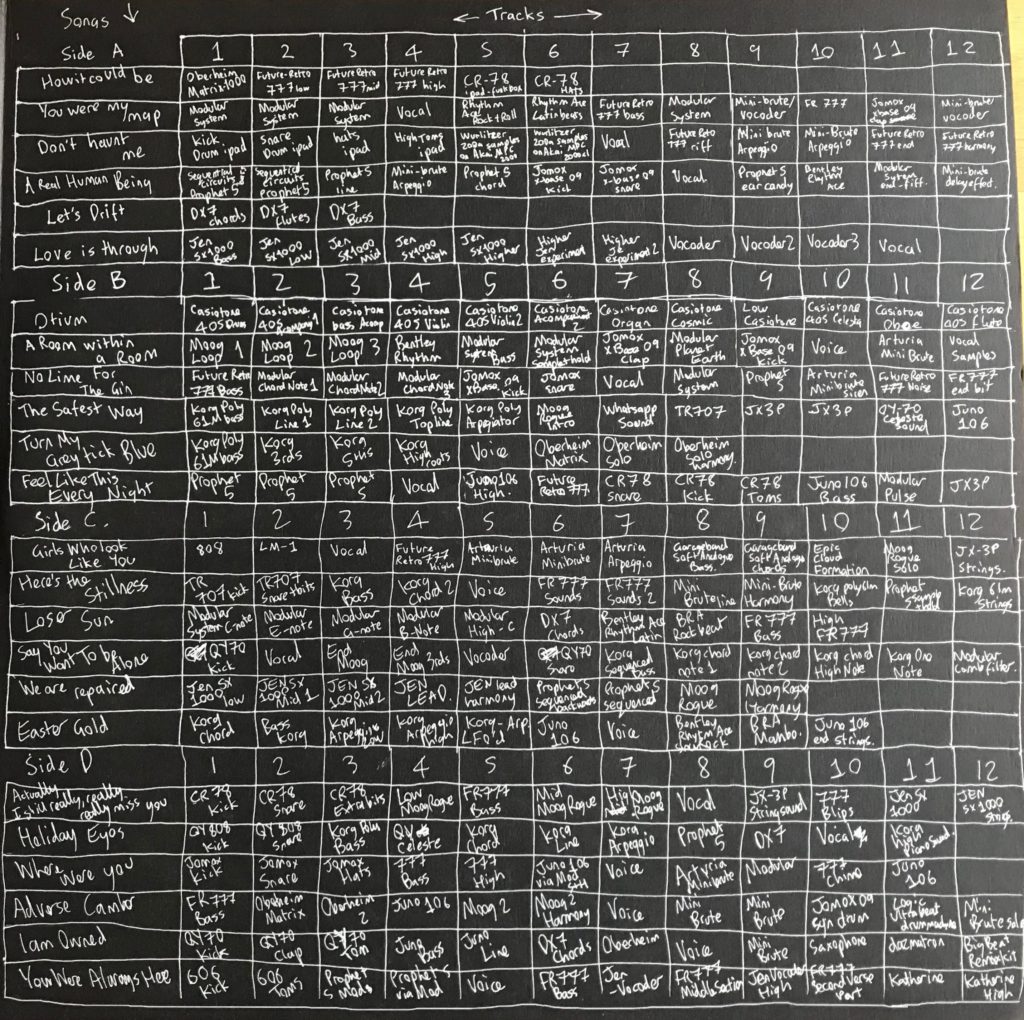 Songs ↓ ← Tracks →
Side A 1 2 3 4 5 6 7 8 9 10 11 12
How it could be Oberheim Matrix 1000 Future-Retro 777 low Future Retro 777 mid Future Retro 777 high CR-78 ipad-funkbox CR-78 Hats
You were my map Modular System Modular System Modular System Vocal Rhythm Ace Rock+Roll Rhythm Ace Latin beats Future Retro 777 bass Modular system Mini-brute/vocoder FR 777 Jomox xbase 09 Mini-brute/vocoder
Don't haunt me Kick, Drum ipad snare Drum ipad hats ipad High Toms ipad Wurlitzer 200a samples on Akai MPC Wurlitzer 200a samples on Akai MPC Vocal Future Retro 777 riff Mini brute Arpeggio Mini-Brute Arpeggio Future Retro 777 end Future Retro 777 harmony
A Real Human Being Sequential circuits Prophet 5 Sequential circuits prophet 5 Prophet 5 line Mini-brute Arpeggio Prophet 5 chord Jomox x-base 09 Kick Jomox x-base 09 snare Vocal Prophet 5 ear candy Bentley Rhythm Ace Modular System end-riff. Mini-brute delay effect.
Let's Drift DX7 chords DX7 flutes DX7 Bass
Love is through Jen SX1000 Bass Jen SX1000 Low Jen SX1000 Mid Jen SX1000 High Jen SX1000 Higher Higher Jen experiment Higher experiment 2 Vocoder Vocoder 2 Vocoder 3 Vocal
Side B 1 2 3 4 5 6 7 8 9 10 11 12
Otium Casiotone 405 Drum Casiotone 405 Casiotone bass Acomp Casiotone 405 Violin Casiotone 405 Violin 2 Casiotone Acompanment 2 Casiotone Organ Casiotone Cosmic Low Casiotone Casiotone 405 Celesta Casiotone Oboe Casiotone 405 flute
A Room within a Room Moog Loop 1 Moog Loop 2 Moog Loop 3 Bentley Rhythm Modular System Bass Modular System sample+hold Jomox xBase 09 Clap Modular Planet Earth Jomox xBase 09 Kick Voice Arturia Mini Brute Vocal Samples
No Lime For The Gin Future Retro 777 Bass Modular Chord Note 1 Modular Chord Note 2 Modular Chord Note 3 Jomox xBase 09 Kick Jomox Snare Vocal Modular System Prophet 5 Arturia Minibrute siren Future Retro 777 Noise FR777 end bit
The Safest Way Korg Poly 61M bass Korg Poly Line 1 Korg Poly Line 2 Korg Poly Topline Korg Poly Arpegiator Moog Rogue Intro Whatsapp Sound TR707 JX3P JX3P QY-70 Celeste sound Juno 106
Turn My Grey Tick Blue Korg Poly 61M bass Korg 3rds Korg 5ths Korg High roots Voice Oberheim Matrix Oberheim Solo Oberheim Solo harmony.
Feel Like This Every Night Prophet 5 Prophet 5 Prophet 5 Vocal Juno 106 High. Future Retro 777 CR78 snare CR78 Kick CR78 Toms Juno 106 Bass Modular Pulse JX3P
Side C. 1 2 3 4 5 6 7 8 9 10 11 12
Girls Who look Like You 808 LM-1 Vocal Future Retro 777 High Arturia Minibrute Arturia Minibrute Arturia Arpeggio Garageband Soft Analogue Bass. Garageband Soft Analogue chords Epic Cloud Formation Moog Rogue Solo JX-3P Strings.
Here's the Stillness TR 707 kick TR707 Snare+bits Korg Bass Korg Chord 2 Voice FR777 Sounds FR777 Sounds 2 Mini Brute line Mini-Brute Harmony Korg poly 61m Bells Prophet 5 Sample+hold Korg 61m Strings
Loser Sun Modular System C-note Modular E-note Modular G-note Modular B-Note Modular High-C DX7 Chords Bentley Rhythm Ace Latin BRA Rock beat FR777 Bass High FR777
Say You Want To be Alone QY70 Kick Vocal End Moog End Moog 3rds Vocoder QY70 Snare Korg sequenced bass Korg chord note 1 Korg chord note 2 Korg chord High Note Korg One Note Modular Comb filter.
We are repaired Jen SX 1000 low JEN SX 1000 Mid 1 JEN SX 1000 Mid 2 JEN LEAD. JEN lead harmony Prophet 5 sequenced backwards Prophet 5 sequenced Moog Rogue Moog Rogue Harmony
Easter Gold Korg Chord Bass Korg Korg Arpeggio Low Korg Arpeggio high Korg-Arp. LFO'd Juno 106 Voice Bentley Rhythm Ace Rock BRA Mambo. Juno 106 end strings.
Side D 1 2 3 4 5 6 7 8 9 10 11 12
Actually I still really, really, really miss you CR78 Kick CR78 Snare CR78 Extra bits Low Moog Rogue FR777 Bass Mid Moog Rogue High Moog Rogue Vocal JX-3P String sound 777 Blips Jen SX 1000 JEN SX1000 Strings.
Holiday Eyes QY 808 Kick QY 808 Snare Korg Plus Bass QY Celeste Korg Chord Korg Line Korg Arpeggio Prophet 5 DX7 Vocal Korg Piano Sound.
Where Were you Jomox Kick Jomox Snare Jomox Hats 777 Bass 777 High Juno 106 via Mod Voice Arturia Minibrute Modular 777 Juno 106
Adverse Camber FR777 Bass Oberheim Matrix Oberheim 2 Juno 106 Moog 2 Moog 2 Harmony Voice Mini Brute Mini Brute Jomox 09 Syn drum Logic Ultrabeat drum machine Mini Brute Solo
I am Owned QY70 Kick QY70 Clap QY70 Tom Juno Bass Juno Line DX7 Chords Oberheim Voice Mini Brute Saxophone Big Beat Remix kit
You Were Always Here 606 Kick 606 Toms Prophet 5 Mod Prophet 5 via Mod Voice FR777 Bass Jen -Vocoder FR777 Middle Section Jen Vocoder High FR777 Second Verse Part Katherine Katherine High